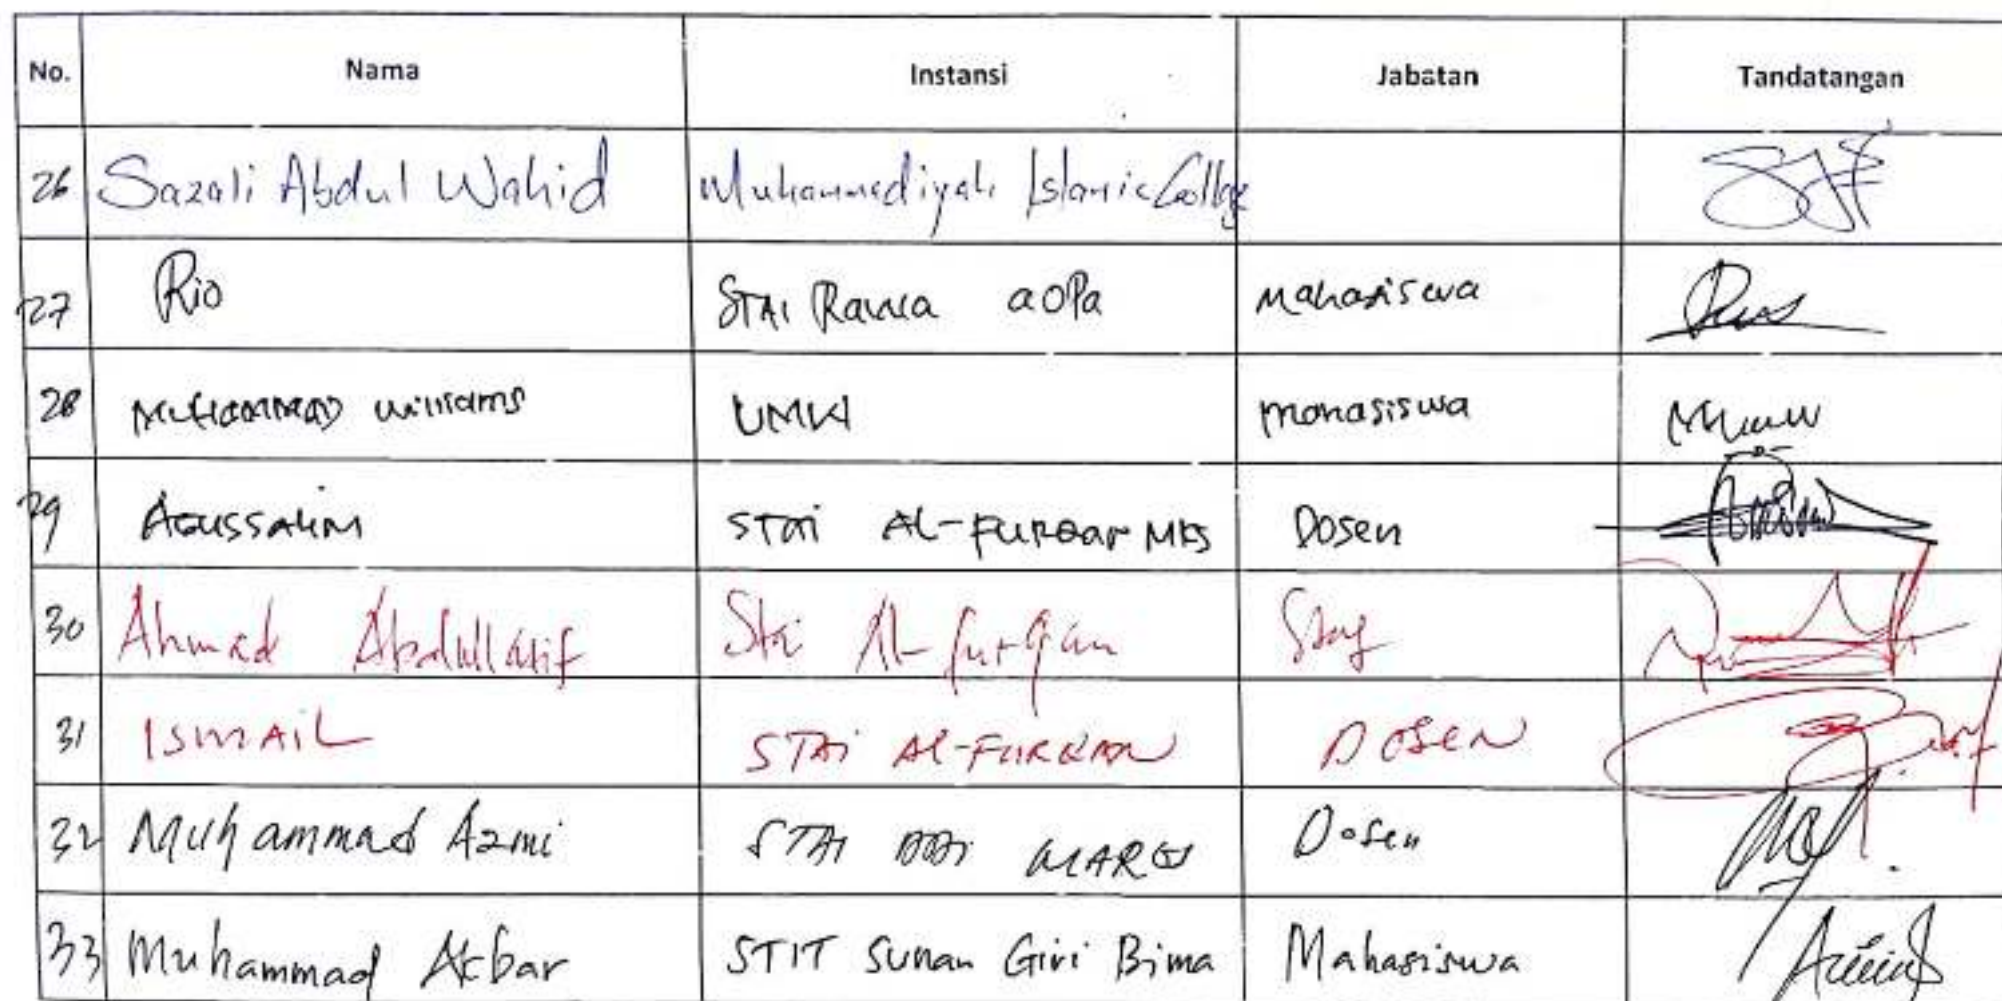 No. Nama Instansi Jabatan Tandatangan
26 Sazali Abdul Wahid Muhammediyah Islamic College
27 Rio STAI Rawa aopa Mahasiswa
28 Muhammad Williams Mahasiswa
29 Agussalim STAI AL-FURQAN MKS Dosen
30 Ahmad Abdullatif Stai Al-furqan Staf
31 ISMAIL STAI AL-FURQAN DOSEN
32 Muhammad Azmi STAI DDI MAROS Dosen
33 Muhammad Akbar STIT Sunan Giri Bima Mahasiswa